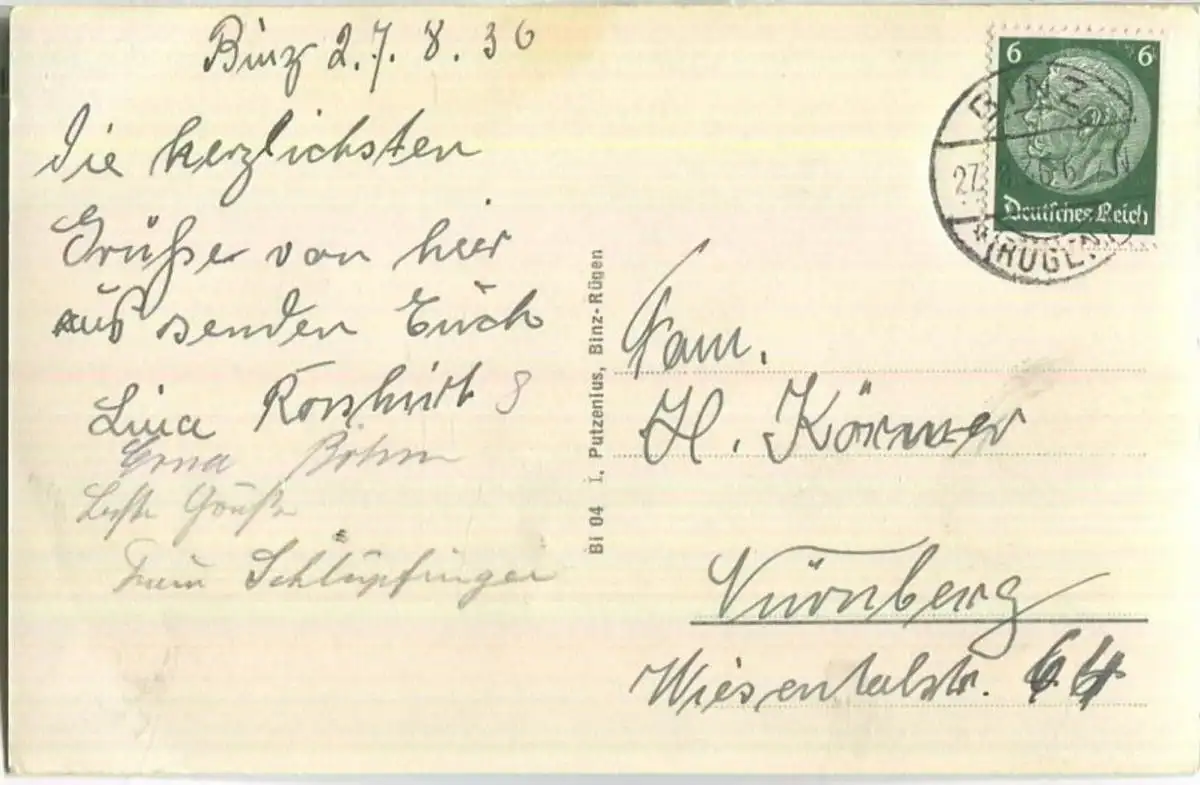 Binz 27. 8. 36
Die herzlichsten
Grüße von hier
aus senden Euch
Lina
Erna Böhm
Beste Grüße
Schlüpfinger
Bi 04 I. Putzenius, Binz-Rügen
6 6
Deutsches Reich
BINZ
27
(RÜGEN)
Fam.
H. Körner
Nürnberg
Wiesentalstr. 64